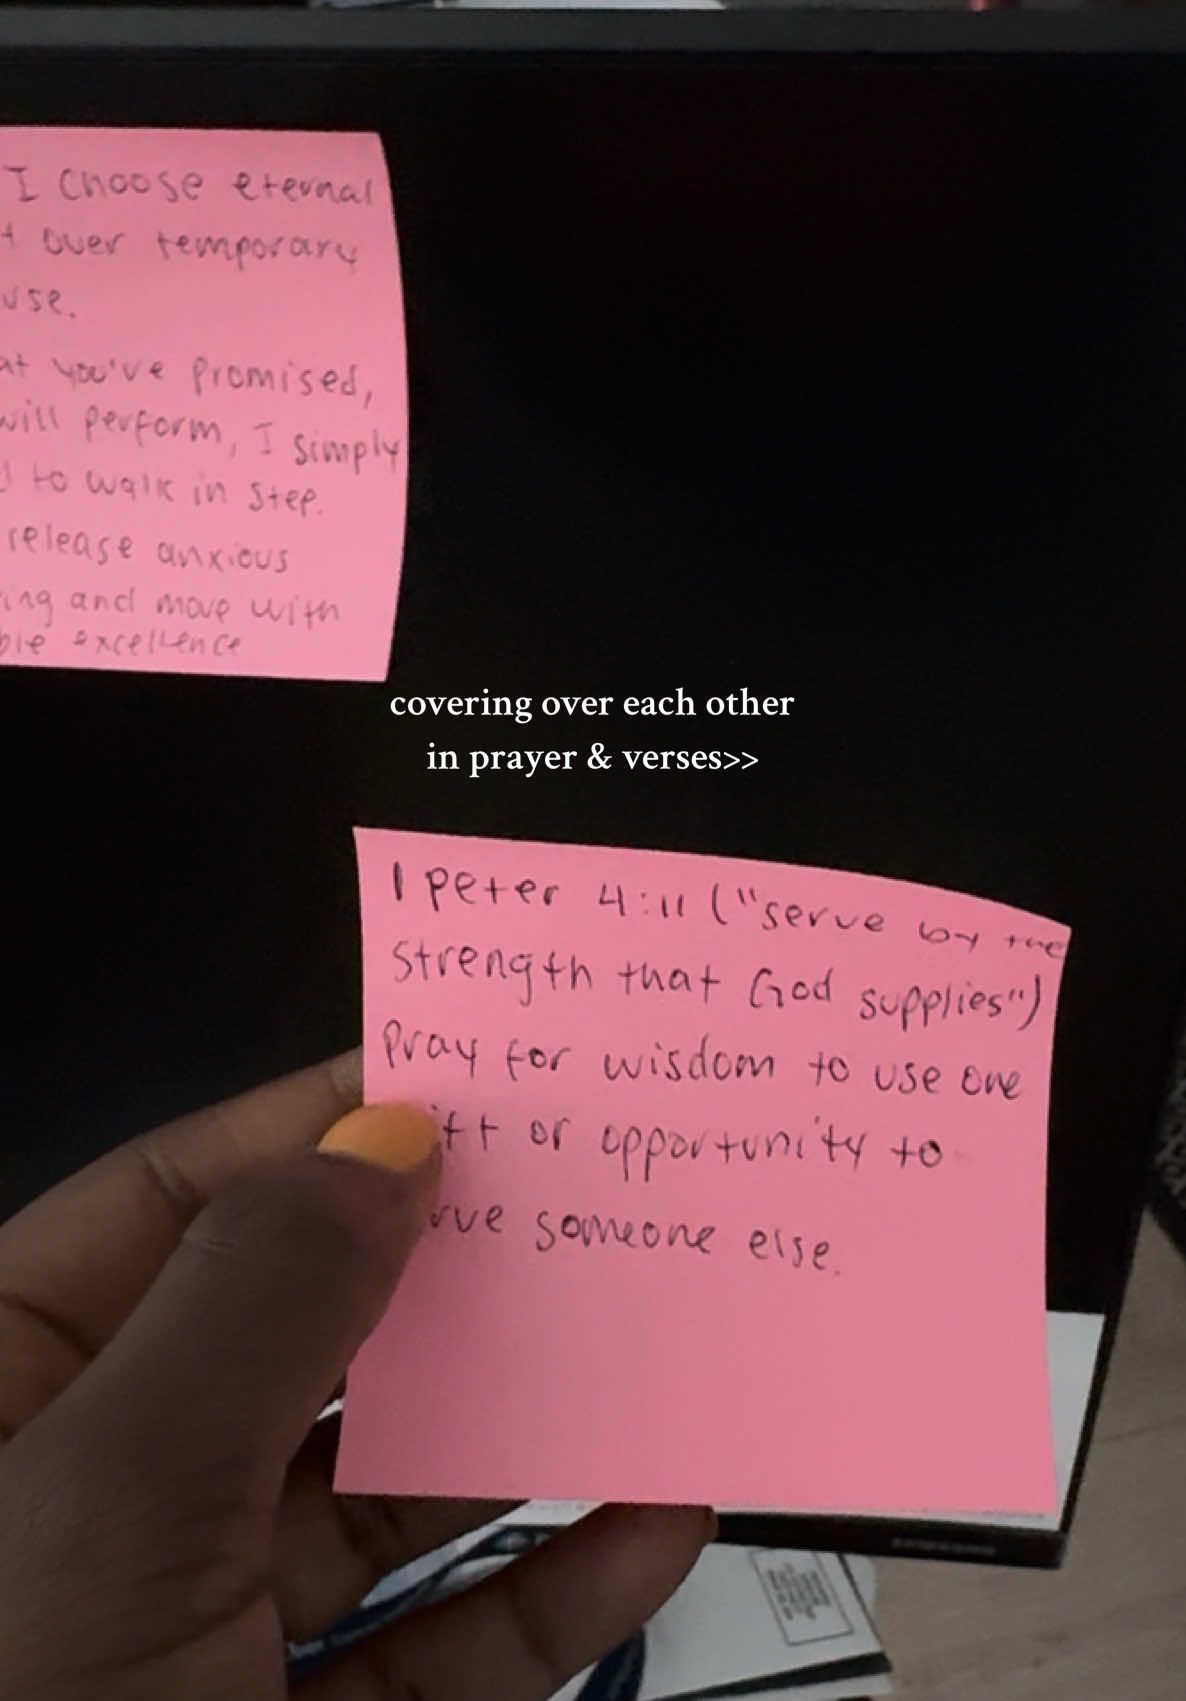 I choose eternal
over temporary
you've promised,
will perform, I simply
to walk in step.
release anxious
and move with
excellence
covering over each other
in prayer & verses>>
1 peter 4:11 ("serve by the
strength that God supplies")
pray for wisdom to use one
or opportunity to
someone else.